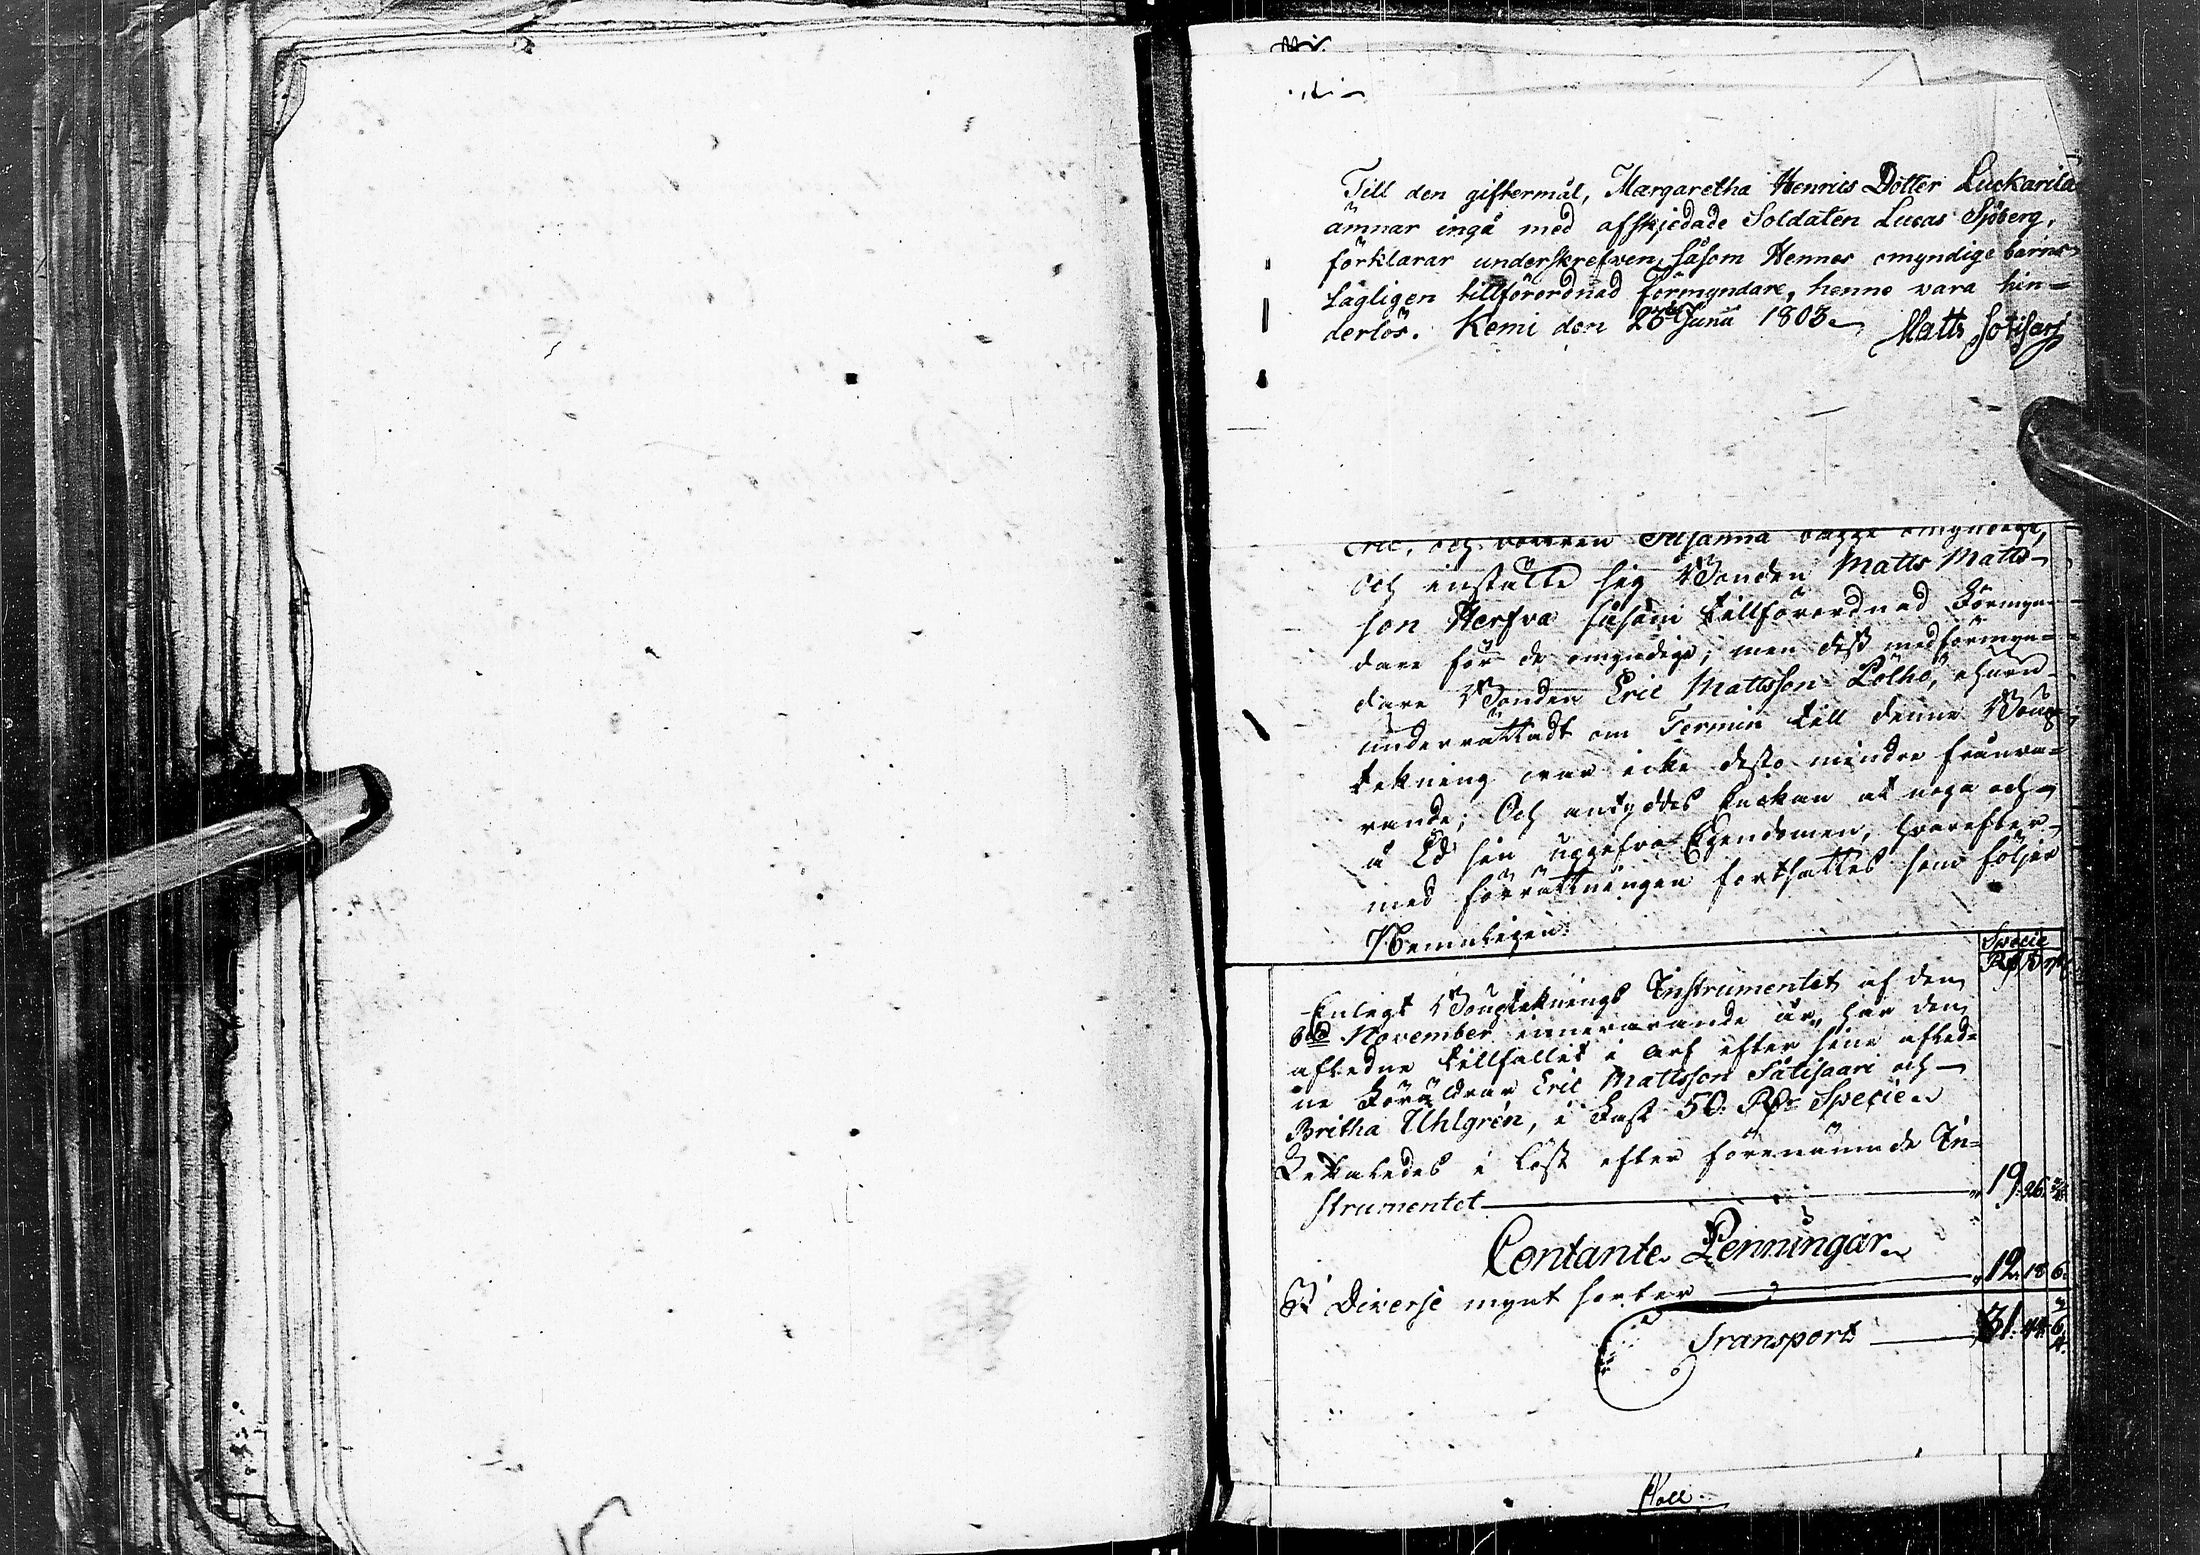 Till den giftermål, Margaretha Henrics Dotter Luckarila
ämnar ingå med afskjedade Soldaten Lucas Sjöberg,
förklarar underskrefven, såsom Hennes omyndige barns
Lagligen tillförordnad förmyndare, henne vara hin-
derlös. Kemi den 25 Junii 1803. Matts Sotisari
Eric, och Susanna omyndige,
och instälte sig Bonden Matts Matts-
son Herfva såsom tillförordnad Förmyn-
dare för de omyndige, men dess medförmyn-
dare Bonden Eric Mattsson Pölhö, ehuru
underrättadt om Termin till denne Boup-
tekning var icke desto mindre frånva-
rande; Och antyddes Enckan at noga och
å Ed sin uppgefva Egendomen, hvarefter
med förrättningen fortsattes som följer
Nemmligen:
Specie
Enligt Bouptekning's Instrumentet af den
November innevarande år, har den
afledne tillfallit i Arf efter sine afled-
ne Föräldrar Eric Mattsson Sätisaari och
Britha Uhlgrén, i Fast 50 Rdr Specie
Dekaledes i löst efter förenämnde In-
strumentet 19. 26.
Contante Penningar
I Diverse mynt sorter 12. 18. 6.
Transport 31. 44.